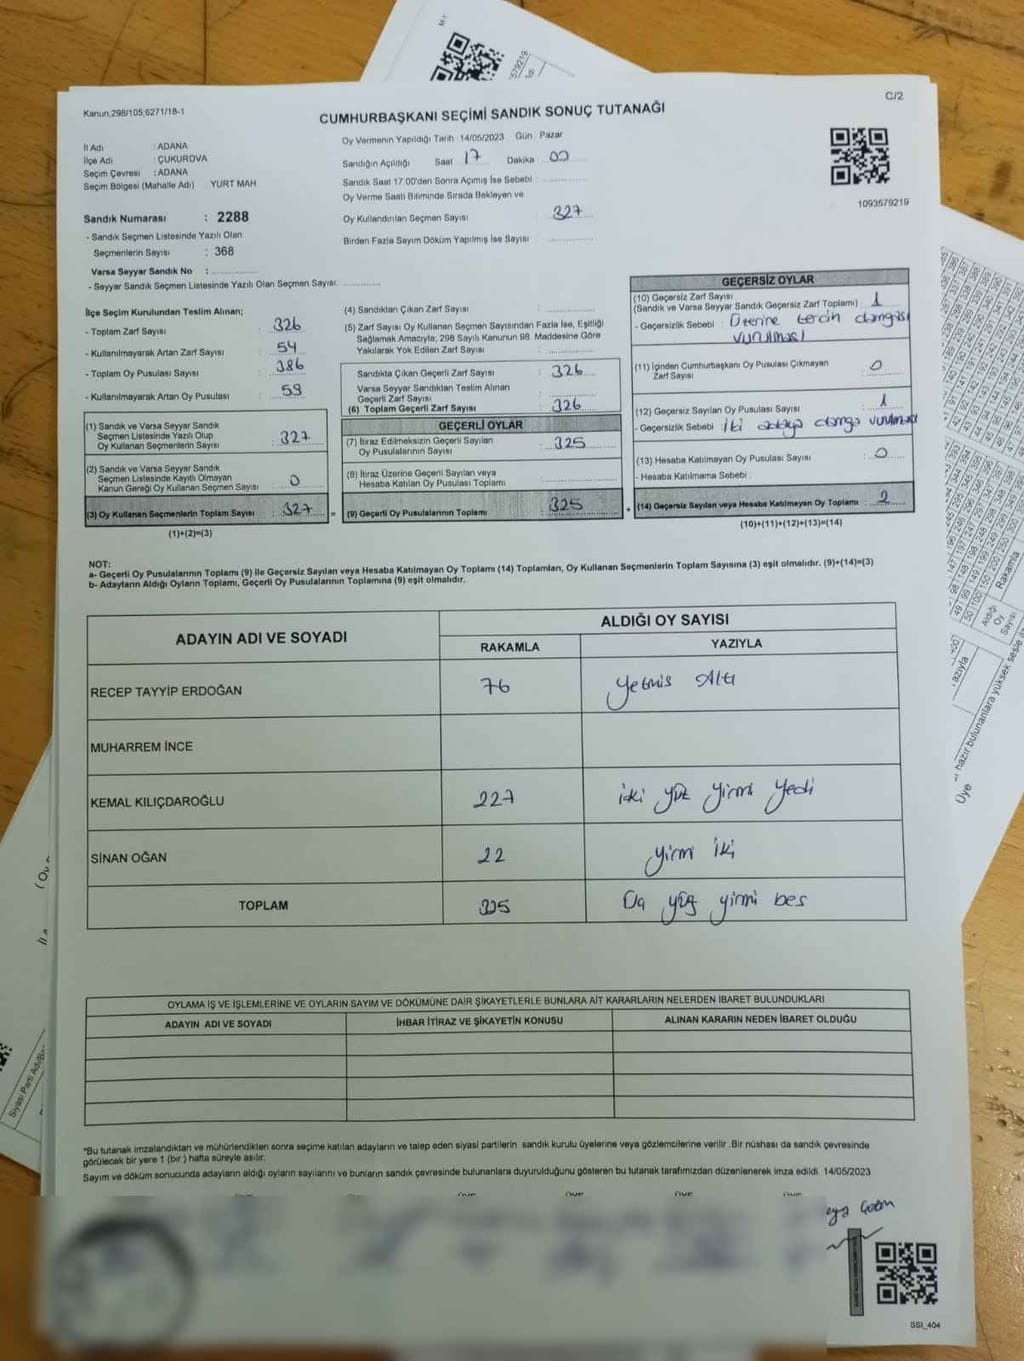 M-1
C/2
Kanun,298/105,6271/18-1
CUMHURBAŞKANI SEÇİMİ SANDIK SONUÇ TUTANAĞI
İl Adı : ADANA
İlçe Adı : ÇUKUROVA
Seçim Çevresi : ADANA
Seçim Bölgesi (Mahalle Adı) YURT MAH
Sandık Numarası : 2288
- Sandık Seçmen Listesinde Yazılı Olan
Seçmenlerin Sayısı : 368
Varsa Seyyar Sandık No :
- Seyyar Sandık Seçmen Listesinde Yazılı Olan Seçmen Sayısı:
Oy Vermenin Yapıldığı Tarih :14/05/2023 Gün : Pazar
Sandığın Açıldığı Saat 17 Dakika 00
Sandık Saat 17:00'den Sonra Açımış İse Sebebi :
Oy Verme Saati Bitiminde Sırada Bekleyen ve
Oy Kullandırılan Seçmen Sayısı : 327
Birden Fazla Sayım Döküm Yapılmış İse Sayısı :
1093579219
İlçe Seçim Kurulundan Teslim Alınan;
- Toplam Zarf Sayısı : 326
- Kullanılmayarak Artan Zarf Sayısı : 54
- Toplam Oy Pusulası Sayısı : 386
- Kullanılmayarak Artan Oy Pusulası : 59
(1) Sandık ve Varsa Seyyar Sandık
Seçmen Listesinde Yazılı Olup
Oy Kullanan Seçmenlerin Sayısı : 327
(2) Sandık ve Varsa Seyyar Sandık
Seçmen Listesinde Kayıtlı Olmayan
Kanun Gereği Oy Kullanan Seçmen Sayısı : 0
(3) Oy Kullanan Seçmenlerin Toplam Sayısı : 327 =
(1)+(2)=(3)
(4) Sandıktan Çıkan Zarf Sayısı :
(5) Zarf Sayısı Oy Kullanan Seçmen Sayısından Fazla İse, Eşitliği
Sağlamak Amacıyla; 298 Sayılı Kanunun 98. Maddesine Göre
Yakılarak Yok Edilen Zarf Sayısı :
Sandıkta Çıkan Geçerli Zarf Sayısı : 326
Varsa Seyyar Sandıktan Teslim Alınan
Geçerli Zarf Sayısı
(6) Toplam Geçerli Zarf Sayısı : 326
GEÇERLİ OYLAR
(7) İtiraz Edilmeksizin Geçerli Sayılan
Oy Pusulalarının Sayısı : 325
(8) İtiraz Üzerine Geçerli Sayılan veya
Hesaba Katılan Oy Pusulası Toplamı :
(9) Geçerli Oy Pusulalarının Toplamı : 325 +
GEÇERSİZ OYLAR
(10) Geçersiz Zarf Sayısı
(Sandık ve Varsa Seyyar Sandık Geçersiz Zarf Toplamı) : 1
- Geçersizlik Sebebi : Üzerine tercih damgası
vurulması
(11) İçinden Cumhurbaşkanı Oy Pusulası Çıkmayan
Zarf Sayısı : 0
(12) Geçersiz Sayılan Oy Pusulası Sayısı : 1
- Geçersizlik Sebebi : İki adaya damga vurulması
(13) Hesaba Katılmayan Oy Pusulası Sayısı : 0
- Hesaba Katılmama Sebebi :
(14) Geçersiz Sayılan veya Hesaba Katılmayan Oy Toplamı : 2
(10)+(11)+(12)+(13)=(14)
NOT:
a- Geçerli Oy Pusulalarının Toplamı (9) ile Geçersiz Sayılan veya Hesaba Katılmayan Oy Toplamı (14) Toplamları, Oy Kullanan Seçmenlerin Toplam Sayısına (3) eşit olmalıdır. (9)+(14)=(3)
b- Adayların Aldığı Oyların Toplamı, Geçerli Oy Pusulalarının Toplamına (9) eşit olmalıdır.
ADAYIN ADI VE SOYADI
ALDIĞI OY SAYISI
RAKAMLA YAZIYLA
RECEP TAYYİP ERDOĞAN 76 Yetmis Altı
MUHARREM İNCE
KEMAL KILIÇDAROĞLU 227 iki yüz yirmi yedi
SİNAN OĞAN 22 yirmi iki
TOPLAM 325 yüz yirmi bes
OYLAMA İŞ VE İŞLEMLERİNE VE OYLARIN SAYIM VE DÖKÜMÜNE DAİR ŞİKAYETLERLE BUNLARA AİT KARARLARIN NELERDEN İBARET BULUNDUKLARI
ADAYIN ADI VE SOYADI İHBAR İTİRAZ VE ŞİKAYETİN KONUSU ALINAN KARARIN NEDEN İBARET OLDUĞU
*Bu tutanak imzalandıktan ve mühürlendikten sonra seçime katılan adayların ve talep eden siyasi partilerin sandık kurulu üyelerine veya gözlemcilerine verilir .Bir nüshası da sandık çevresinde
görülecek bir yere 1 (bir ) hafta süreyle asılır.
Sayım ve döküm sonucunda adayların aldığı oyların sayılarını ve bunların sandık çevresinde bulunanlara duyurulduğunu gösteren bu tutanak tarafımızdan düzenlenerek imza edildi. 14/05/2023
SSI_404
Aldığı
Oy
Sayısı
Rakamla
hazır bulunanlara yüksek sesle
Üye